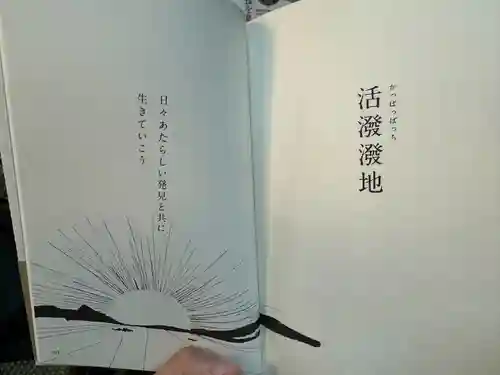 かっぱつぱっち
活潑潑地
日々あたらしい発見と共に
生きていこう